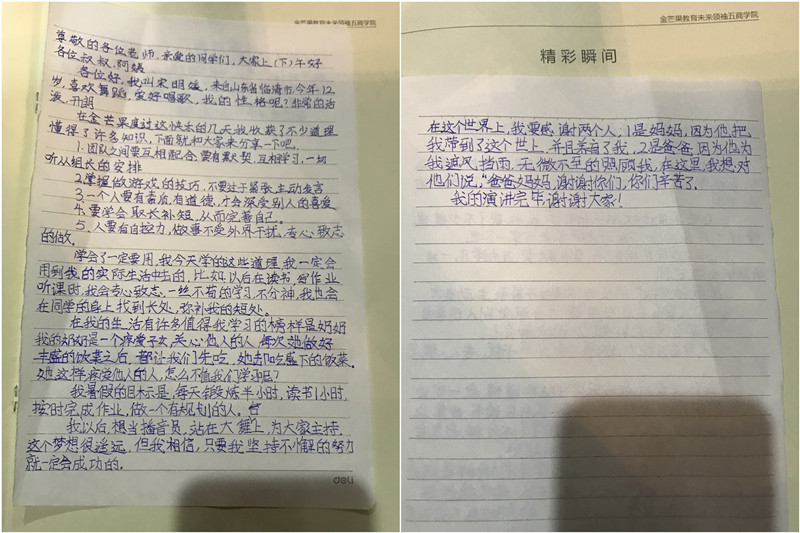 尊敬的各位老师、亲爱的同学们,大家上(下)午好
各位叔叔,阿姨
各位好,我叫宋明媛,来自山东省临清市,今年12
岁,喜欢舞蹈,爱好唱歌,我的性格呢?非常的活
泼、开朗
在金芒果度过这快去的几天我收获了不少道理
懂得了许多知识,下面就和大家来分享一下吧。
1.团队之间要互相配合,要有默契,互相学习,一切
听从组长的安排
2.掌握做游戏的技巧,不要过于紧张,主动发言
3.一个人要有素质,有道德,才会深受别人的喜爱
4.要学会取长补短,从而完善自己。
5.人要有自控力,做事不受外界干扰,专心致志
的做。
学会了一定要用,我今天学的这些道理,我一定会
用到我的实际生活中去的,比如以后在读书,写作业
听课时,我会专心致志,一丝不苟的学习,不分神,我也会
在同学的身上找到长处,弥补我的短处。
在我的生活有许多值得我学习的榜样是奶奶
我的奶奶是一个疼爱子女,关心他人的人,每次她做好
丰盛的饭菜之后,都让我们先吃,她去吃盛下的饭菜。
她这样疼爱他人的人,怎么不值我们学习呢?
我暑假的目标是,每天锻炼半小时,读书1小时,
按时完成作业,做一个有规划的人。
我以后,想当播音员,站在大舞上,为大家主持,
这个梦想很遥远,但我相信,只要我坚持不懈的努力
就一定会成功的。
deli
金芒果教育未来领袖五商学院
精彩瞬间
在这个世界上,我要感谢两个人,1是妈妈,因为他把
我带到了这个世上,并且养育了我,2是爸爸,因为他为
我遮风挡雨,无微不至的照顾我,在这里,我想对
他们说,"爸爸妈妈,谢谢你们,你们辛苦了。
我的演讲完毕,谢谢大家!